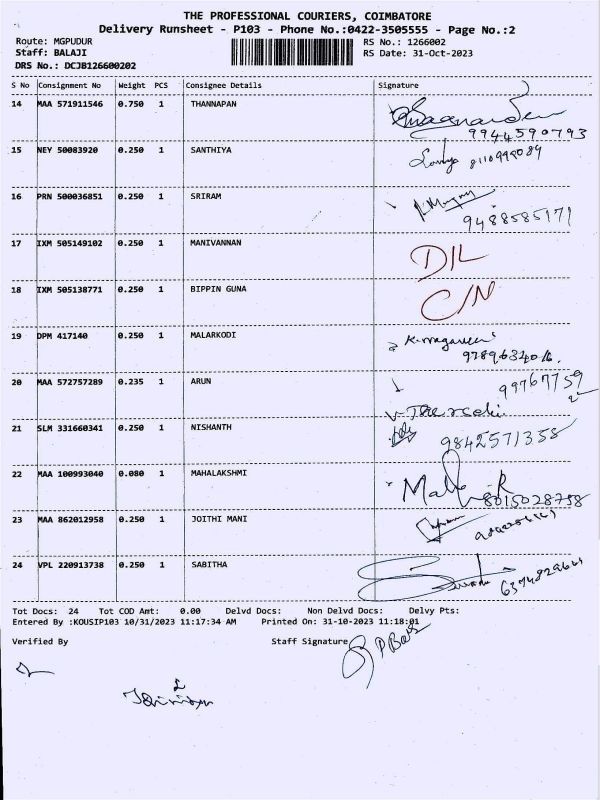 THE PROFESSIONAL COURIERS, COIMBATORE
Delivery Runsheet - P103 - Phone No.:0422-3505555 - Page No.:2
Route: MGPUDUR RS No.: 1266002
Staff: BALAJI RS Date: 31-Oct-2023
DRS No.: DCJB126600202
S No Consignment No Weight PCS Consignee Details Signature
14 MAA 571911546 0.750 1 THANNAPAN
9944590793
15 NEY 50083920 0.250 1 SANTHIYA
16 PRN 500036851 0.250 1 SRIRAM
9488585171
17 IXM 505149102 0.250 1 MANIVANNAN D/L
18 IXM 505138771 0.250 1 BIPPIN GUNA C/N
19 DPM 417140 0.250 1 MALARKODI
20 MAA 572757289 0.235 1 ARUN
99767759
21 SLM 331660341 0.250 1 NISHANTH
9842571358
22 MAA 100993040 0.080 1 MAHALAKSHMI
8015028758
23 MAA 862012958 0.250 1 JOITHI MANI
24 VPL 220913738 0.250 1 SABITHA
Tot Docs: 24 Tot COD Amt: 0.00 Delvd Docs: Non Delvd Docs: Delvy Pts:
Entered By :KOUSIP103 10/31/2023 11:17:34 AM Printed On: 31-10-2023 11:18:01
Verified By Staff Signature